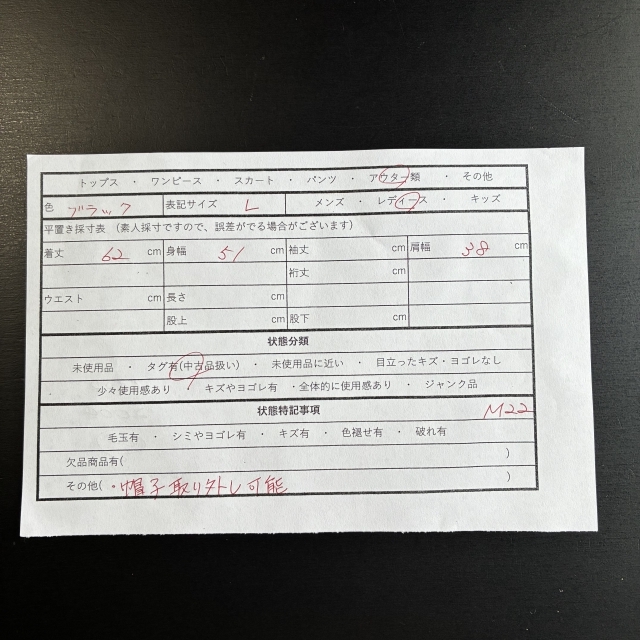 トップス ・ ワンピース ・ スカート ・ パンツ ・ アウター類 ・ その他
色 ブラック 表記サイズ L メンズ ・ レディース ・ キッズ
平置き採寸表 (素人採寸ですので、誤差がでる場合がございます)
着丈 62 cm 身幅 51 cm 袖丈 cm 肩幅 38 cm
裄丈 cm
ウエスト cm 長さ cm cm
股上 cm 股下 cm
状態分類
未使用品 ・ タグ有(中古品扱い) ・ 未使用品に近い ・ 目立ったキズ・ヨゴレなし
少々使用感あり ・ キズやヨゴレ有 ・全体的に使用感あり ・ ジャンク品
状態特記事項 M22
毛玉有 ・ シミやヨゴレ有 ・ キズ有 ・ 色褪せ有 ・ 破れ有
欠品商品有( )
その他( ・帽子取り外し可能 )